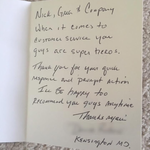 Nick, Gene & Company
When it comes to
customer service you
guys are super heroes.
Thank you for your quick
response and prompt action
I'll be happy to
recommend you guys anytime
Thanks again!
Kensington MD.